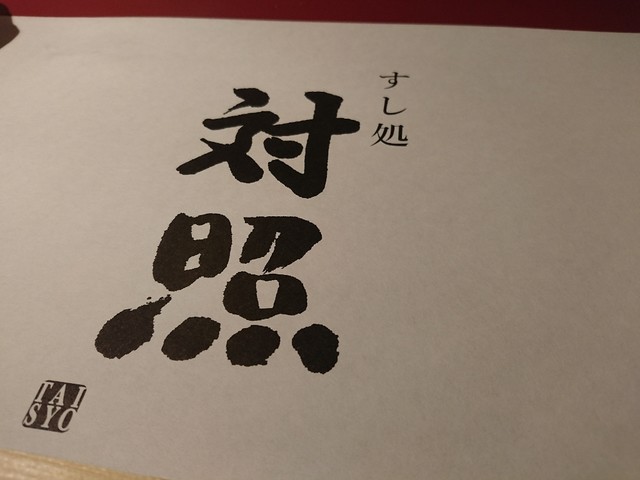 すし処
対照
TAI
SYO